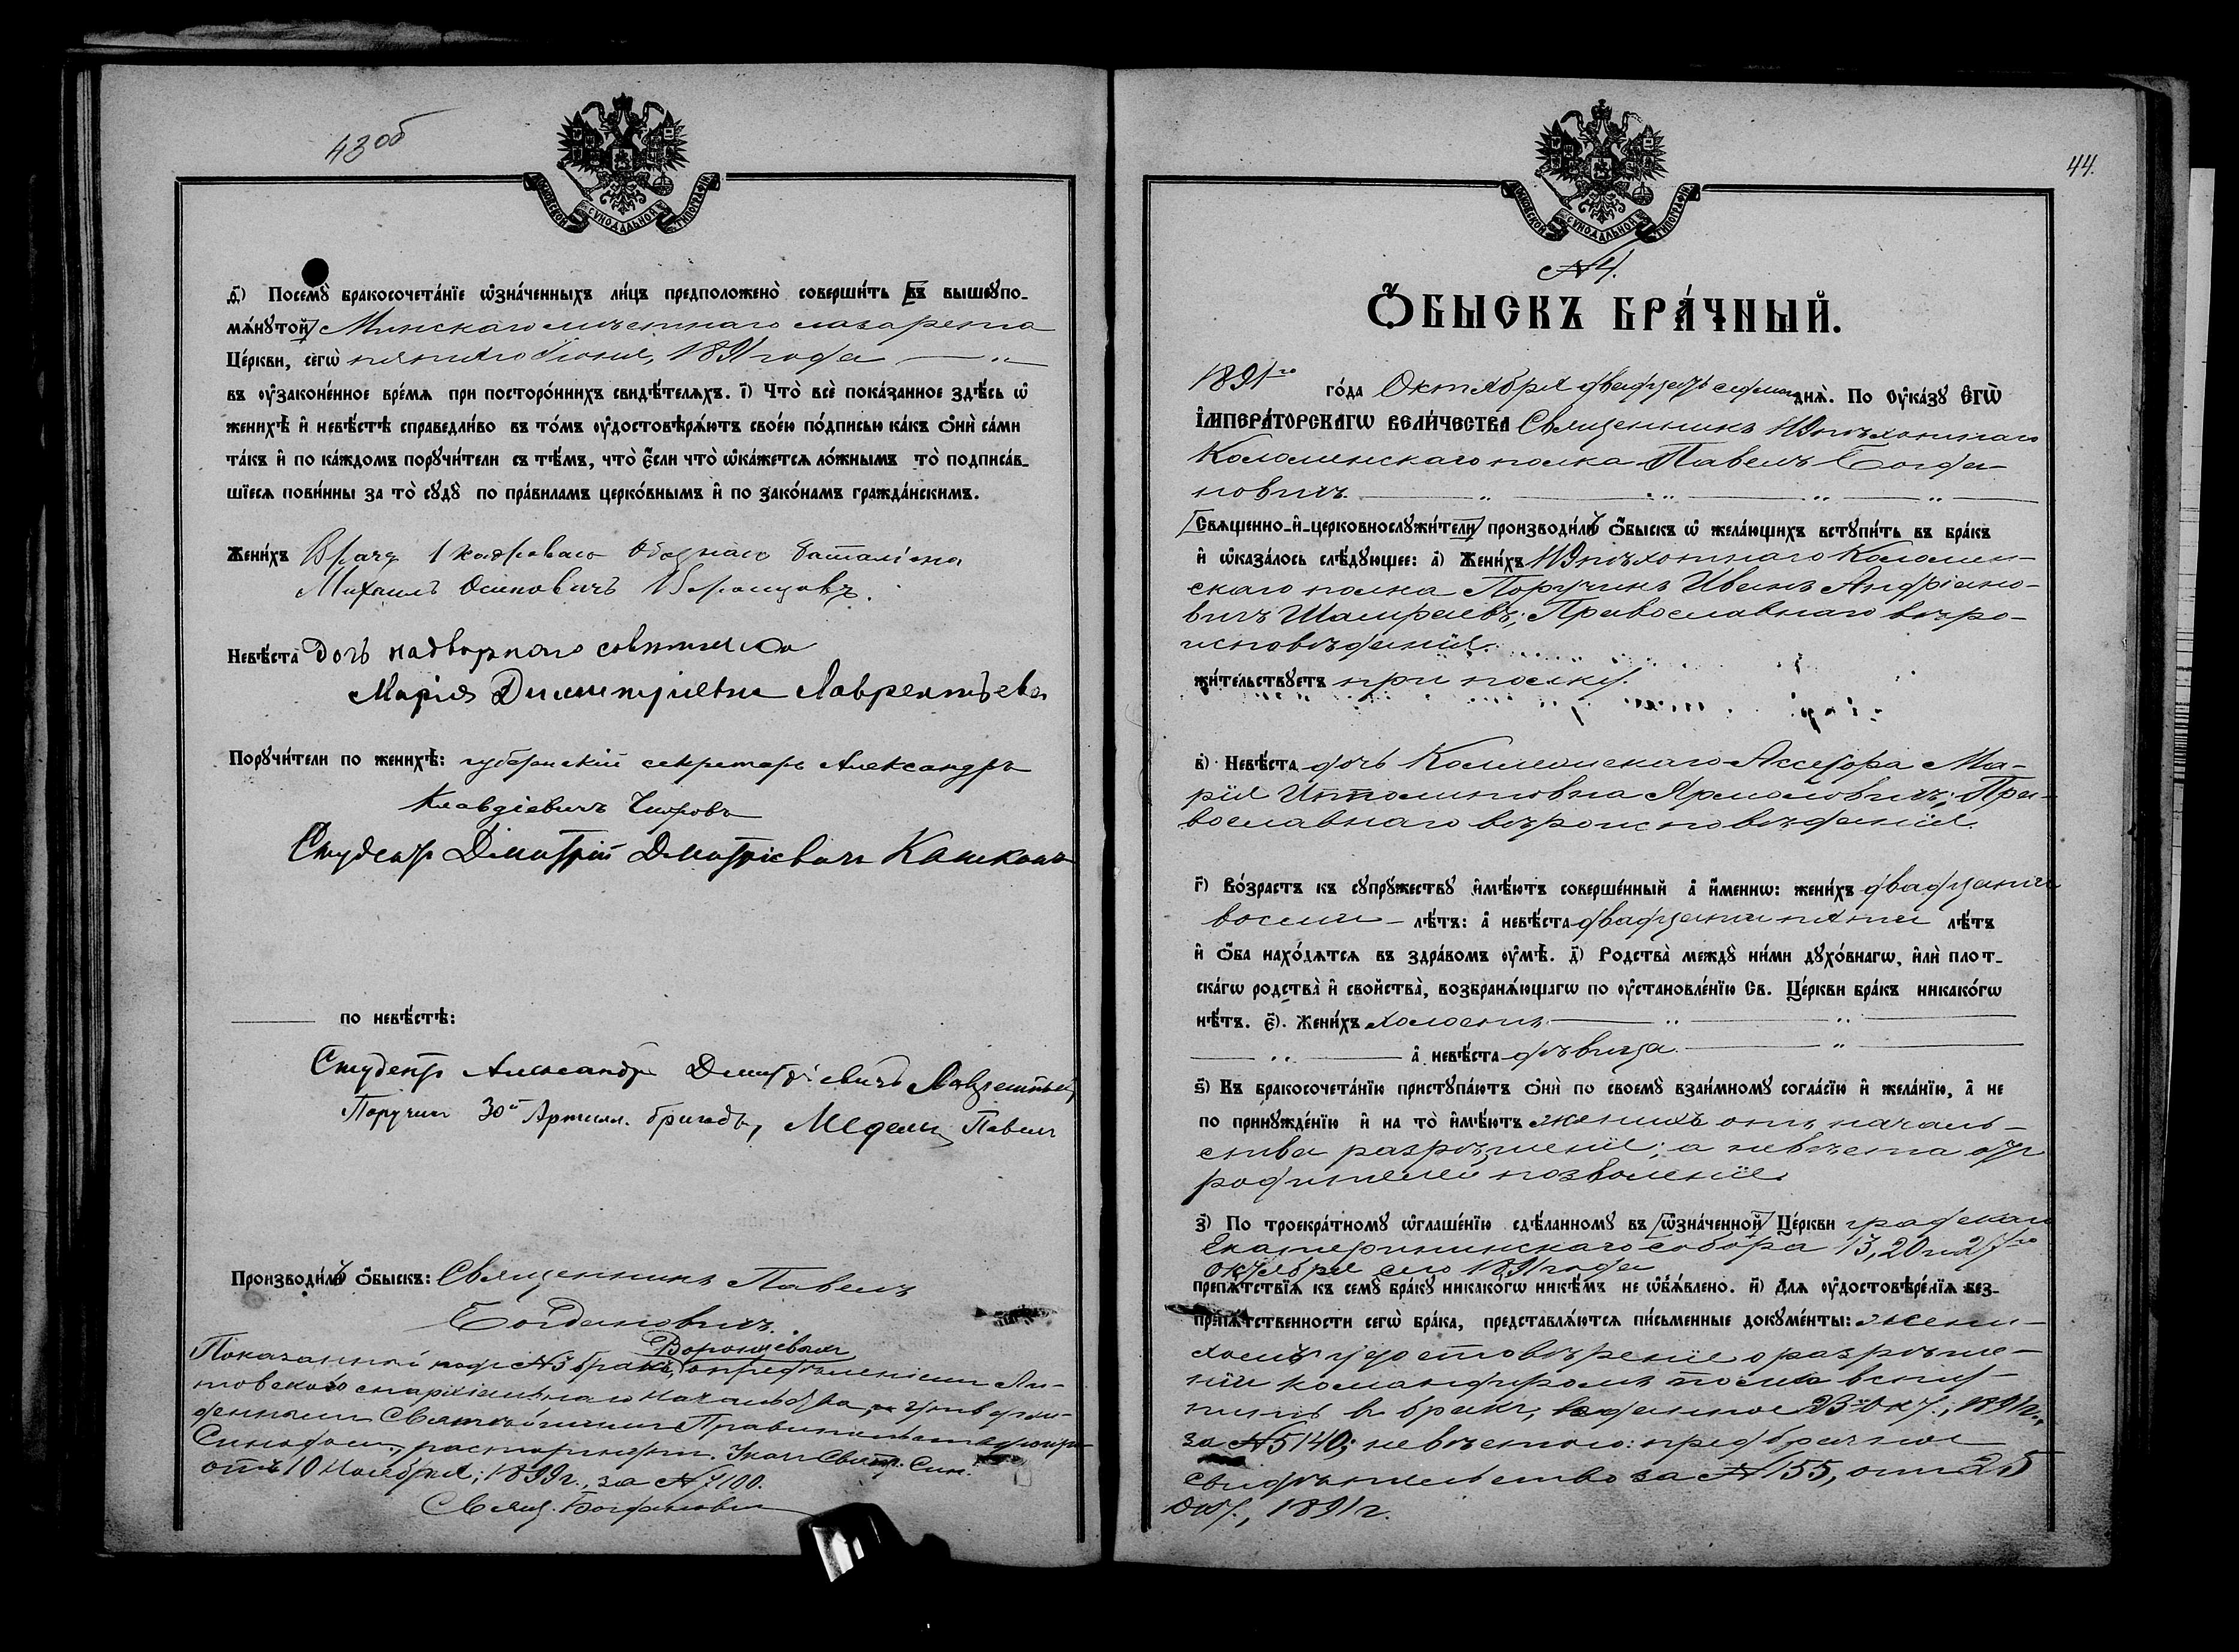 43 об
МОСКОВСКОЙ СѴНОДАЛЬНОЙ ТИПОГРАФІИ
ѳ҃) Посемꙋ̀ бракосочета́нїе ѡ҆зна́ченныхъ ли́цъ предположено̀ соверши́ть въ вышеꙋпо-
мѧ́нꙋтой Минскаго мѣстнаго лазарета
Це́ркви, сегѡ̀ пятаго Іюня, 1891 года
въ ᲂу҆законе́нное вре́мѧ при посторо́ннихъ свидѣ́телѧхъ. і҃) Что̀ всѐ пока́занное здѣ́сь ѡ҆
женихѣ̀ и҆ невѣ́стѣ справедли́во въ то́мъ ᲂу҆достовѣрѧ́ютъ свое́ю по́дписью ка́къ ѻ҆нѝ са́ми
та́къ и҆ по ка́ждомъ порꙋчи́тели съ тѣ́мъ, что̀ є҆́сли что̀ ѡ҆ка́жетсѧ ло́жнымъ то̀ подписа́в-
шїесѧ пови́нны за то̀ сꙋдꙋ̀ по пра́виламъ церко́внымъ и҆ по зако́намъ гражда́нскимъ.
Жени́хъ Врачъ 1 кадроваго обознаго баталіона
Михаилъ Осиповичъ
Невѣ́ста Дочь надворнаго совѣтника
Марія Димитріевна Лаврентьева
Порꙋчи́тели по женихѣ̀: губернскій секретарь Александръ
Клавдіевичъ
Студентъ Дмитрій Дмитріевичъ
по невѣ́стѣ:
Студентъ Александръ Дмитріевичъ Лаврентьевъ
Поручикъ 30й Артилл. бригады, Павелъ
Производи́лъ ѻ҆́быскъ: Священникъ Павелъ
Богдановичъ.
Показанный подъ №3 бракъ, опредѣленіемъ Ли-
товскаго епархіальнаго начальства, утвержден-
деннымъ Святѣйшимъ Правительствующимъ
Синодомъ, расторгнутъ. Указъ Свят. Син.
отъ 10 Ноября, 1899 г., за №7100.
Свящ. Богдановичъ
44.
МОСКОВСКОЙ СѴНОДАЛЬНОЙ ТИПОГРАФІИ
№ 4.
Ѻ҆́БЫСКЪ БРА́ЧНЫЙ.
1891го го́да Октября двадцать седьмаго днѧ̀. По ᲂу҆ка́зꙋ Є҆ГѠ̀
І҆МПЕРА́ТОРСКАГѠ ВЕЛИ́ЧЕСТВА Священникъ 119 пѣхотнаго
Коломенскаго полка Павелъ Богда-
новичъ.
Свѧщенно-и҆-церковнослꙋжи́тели производи́лъ ѻ҆́быскъ ѡ҆ жела́ющихъ встꙋпи́ть въ бра́къ
и҆ ѡ҆каза́лось слѣ́дꙋющее: а҃) Жени́хъ 119 пѣхотнаго Коломен-
скаго полка Поручикъ Иванъ Андріано-
вичъ Шамраевъ; Православнаго вѣро-
исповѣданія.
жи́тельствꙋетъ при полку.
в҃) Невѣ́ста дочь Коллежскаго Ассесора Ма-
рія Ярмоловичъ; Пра-
вославнаго вѣроисповѣданія.
г҃) Во́зрастъ къ сꙋпрꙋ́жествꙋ и҆мѣ́ютъ соверше́нный а҆ и҆́менно: жени́хъ двадцати
восьми лѣ́тъ: а҆ невѣ́ста двадцати пяти лѣ́тъ
и҆ ѻ҆́ба нахо́дѧтсѧ въ здра́вомъ ᲂу҆мѣ̀. д҃) Родства̀ междꙋ̀ ни́ми дꙋхо́внагѡ, и҆лѝ плот-
ска́гѡ родства̀ и҆ свойства̀, возбранѧ́ющагѡ по ᲂу҆становле́нїю Св. Це́ркви бра́къ никако́гѡ
нѣ́тъ. є҃). Жени́хъ холостъ
а҆ невѣ́ста дѣвица.
ѕ҃) Къ бракосочета́нїю пристꙋпа́ютъ ѻ҆нѝ по своемꙋ̀ взаи́мномꙋ согла́сїю и҆ жела́нїю, а҆ не
по принꙋжде́нїю и҆ на то̀ и҆мѣ́ютъ женихъ отъ началь-
ства разрѣшеніе; а невѣста отъ
родителей позволеніе.
з҃) По троекра́тномꙋ ѡ҆глаше́нїю сдѣ́ланномꙋ въ ѡ҆зна́ченной Це́ркви градскаго
Екатерининскаго собора 13, 20 и 27го
октября сего 1891 года
препѧ́тствїѧ къ семꙋ̀ бра́кꙋ никако́гѡ никѣ́мъ не ѡ҆бъѧ́влено. и҃) Длѧ ᲂу҆достовѣре́нїѧ без-
препѧ́тственности сегѡ̀ бра́ка, представлѧ́ютсѧ пи́сьменные докꙋме́нты: жени-
хомъ удостовѣреніе о разрѣше-
ніи командиромъ полка всту-
пить въ бракъ, выданное 23го Окт., 1891 г.,
за №5140; невѣстою: предбрачное
свидѣтельство за №155, отъ 25
Окт., 1891 г.